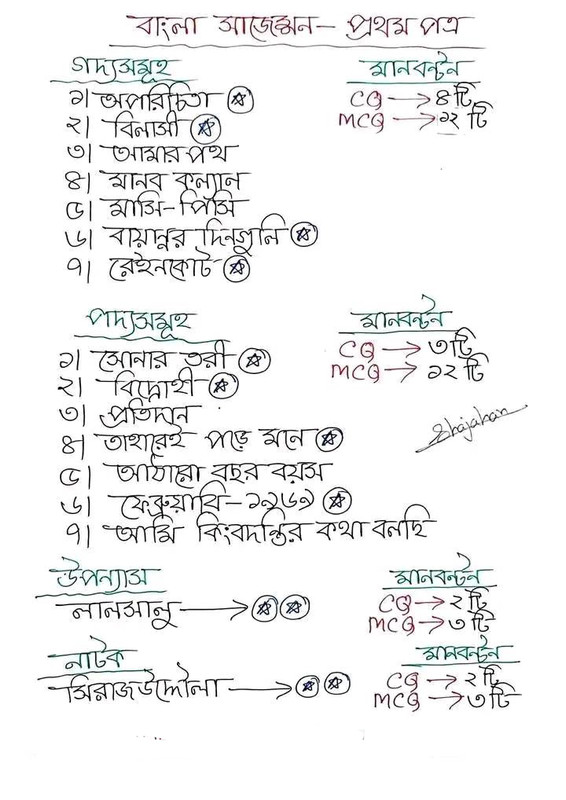 বাংলা সাজেসন- প্রথম পত্র
গদ্যসমূহ
মানবন্টন
১। অপরিচিতা
CQ → ৪টি
২। বিলাসী
MCQ → ১২ টি
৩। আমার পথ
৪। মানব কল্যান
৫। মাসি-পিসি
৬। বায়ান্নর দিনগুলি
৭। রেইনকোট
পদ্যসমূহ
মানবন্টন
১। সোনার তরী
CQ → ৩টি
২। বিদ্রোহী
MCQ → ১২ টি
৩। প্রতিদান
৪। তাহারেই পড়ে মনে
Shajahan
৫। আঠারো বছর বয়স
৬। ফেব্রুয়ারি-১৯৬৯
৭। আমি কিংবদন্তির কথা বলছি
উপন্যাস
মানবন্টন
লালসালু →
CQ → ২ টি
MCQ → ৩ টি
নাটক
মানবন্টন
সিরাজউদ্দৌলা →
CQ → ২টি
MCQ → ৩টি